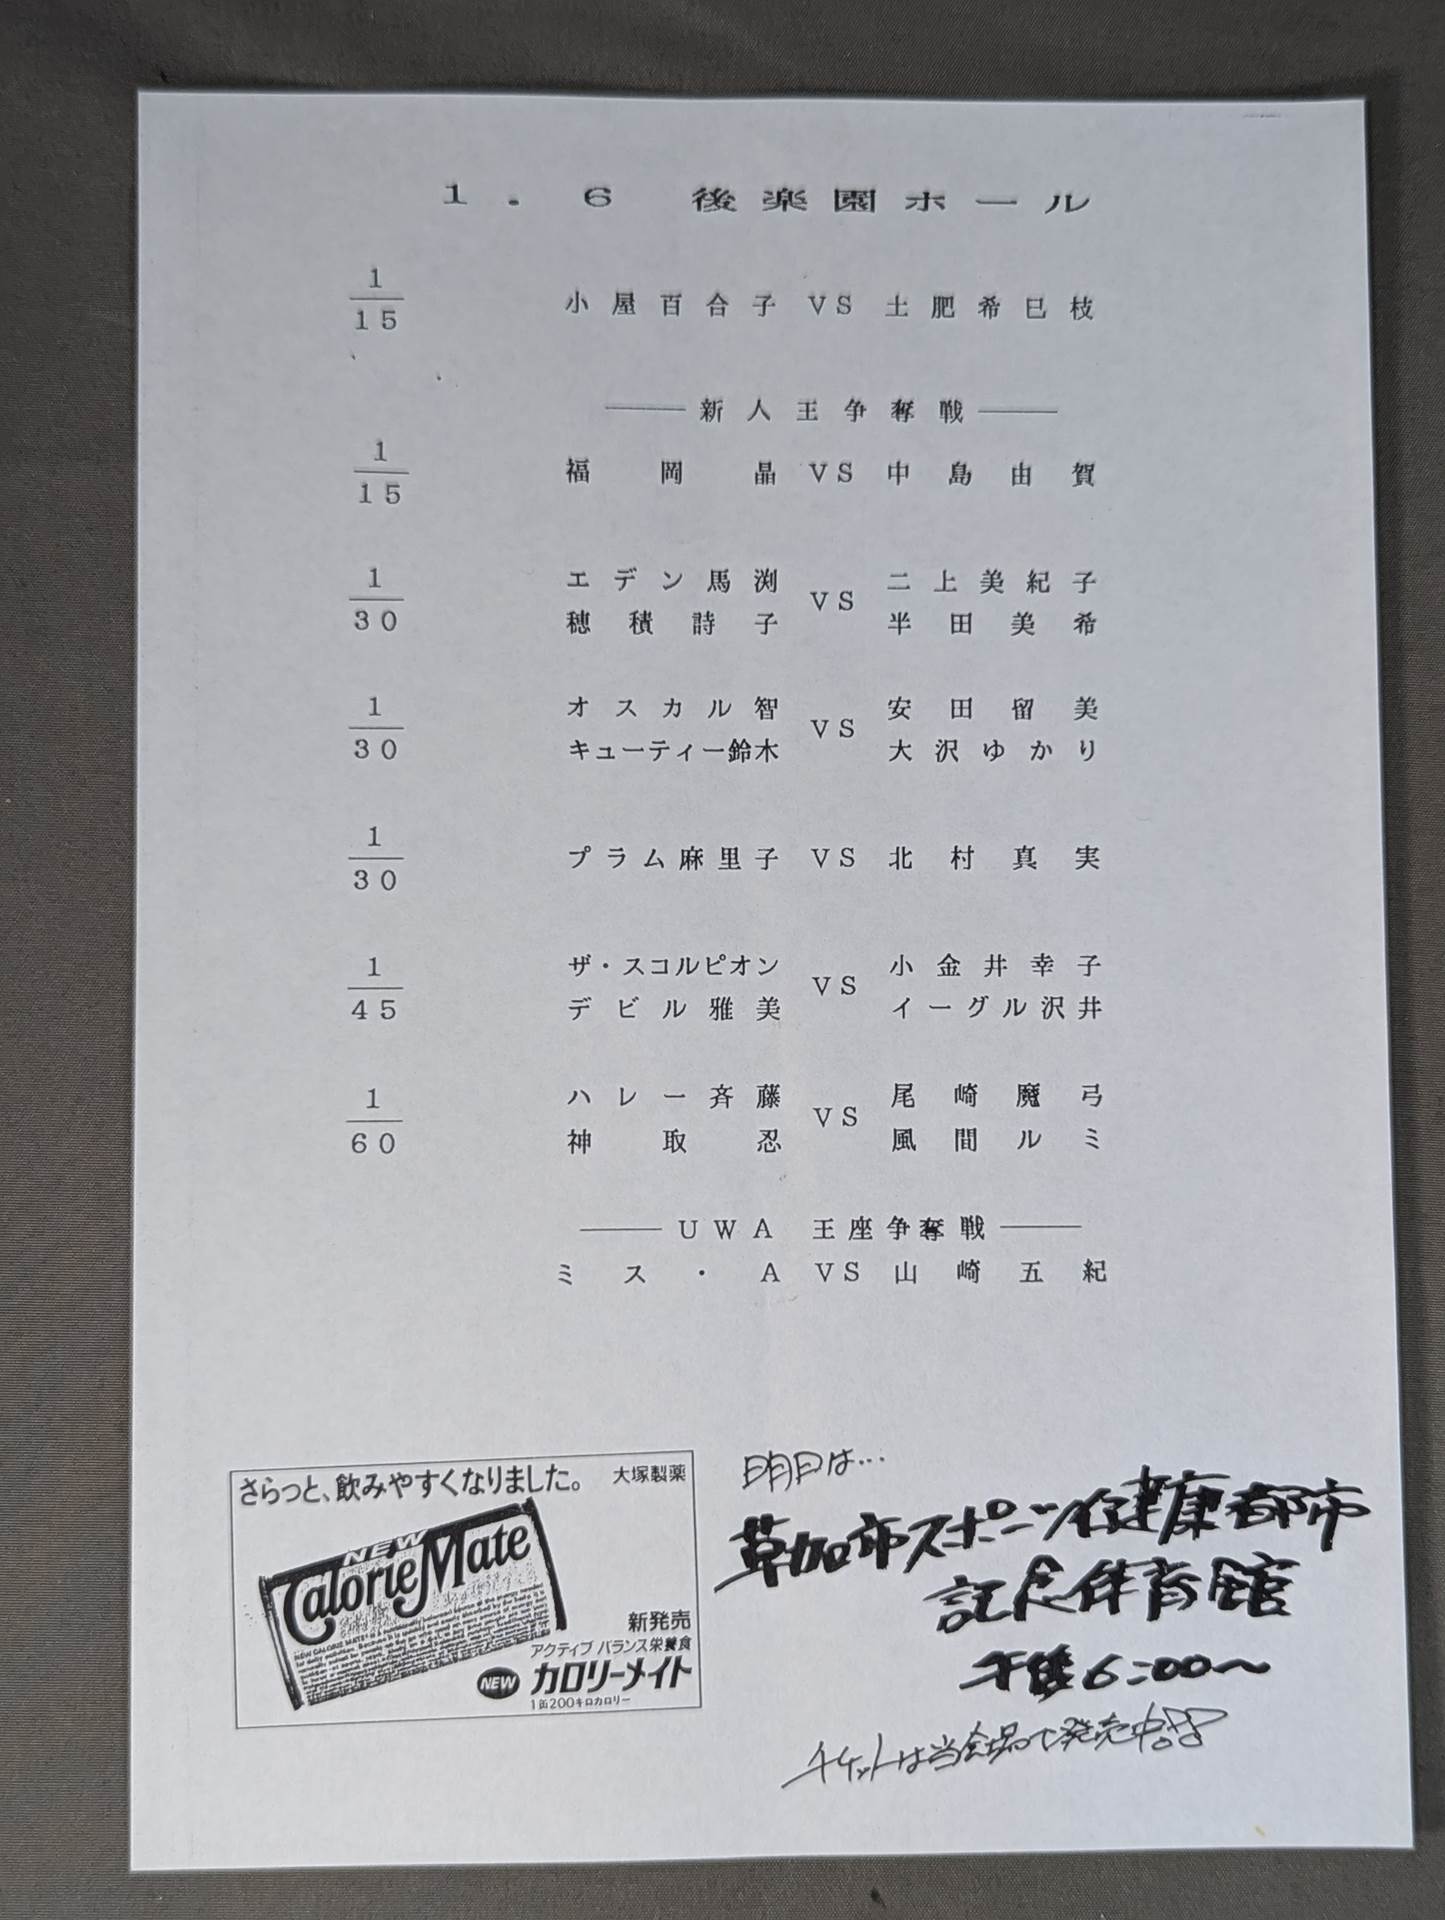 1.6 後楽園ホール
1/15 小屋百合子 VS 土肥希巳枝
新人王争奪戦
1/15 福岡晶 VS 中島由賀
1/30 エデン馬渕 VS 二上美紀子
穂積詩子 半田美希
1/30 オスカル智 VS 安田留美
キューティー鈴木 大沢ゆかり
1/30 プラム麻里子 VS 北村真実
1/45 ザ・スコルピオン VS 小金井幸子
デビル雅美 イーグル沢井
1/60 ハレー斉藤 VS 尾崎魔弓
神取忍 風間ルミ
UWA 王座争奪戦
ミス・A VS 山崎五紀
さらっと、飲みやすくなりました。 大塚製薬
NEW
CalorieMate
新発売
アクティブ バランス栄養食
NEW カロリーメイト
1缶200キロカロリー
明日は…
草加市スポーツ健康都市
記念体育館
午後6:00〜
チケットは当会場で発売中!!